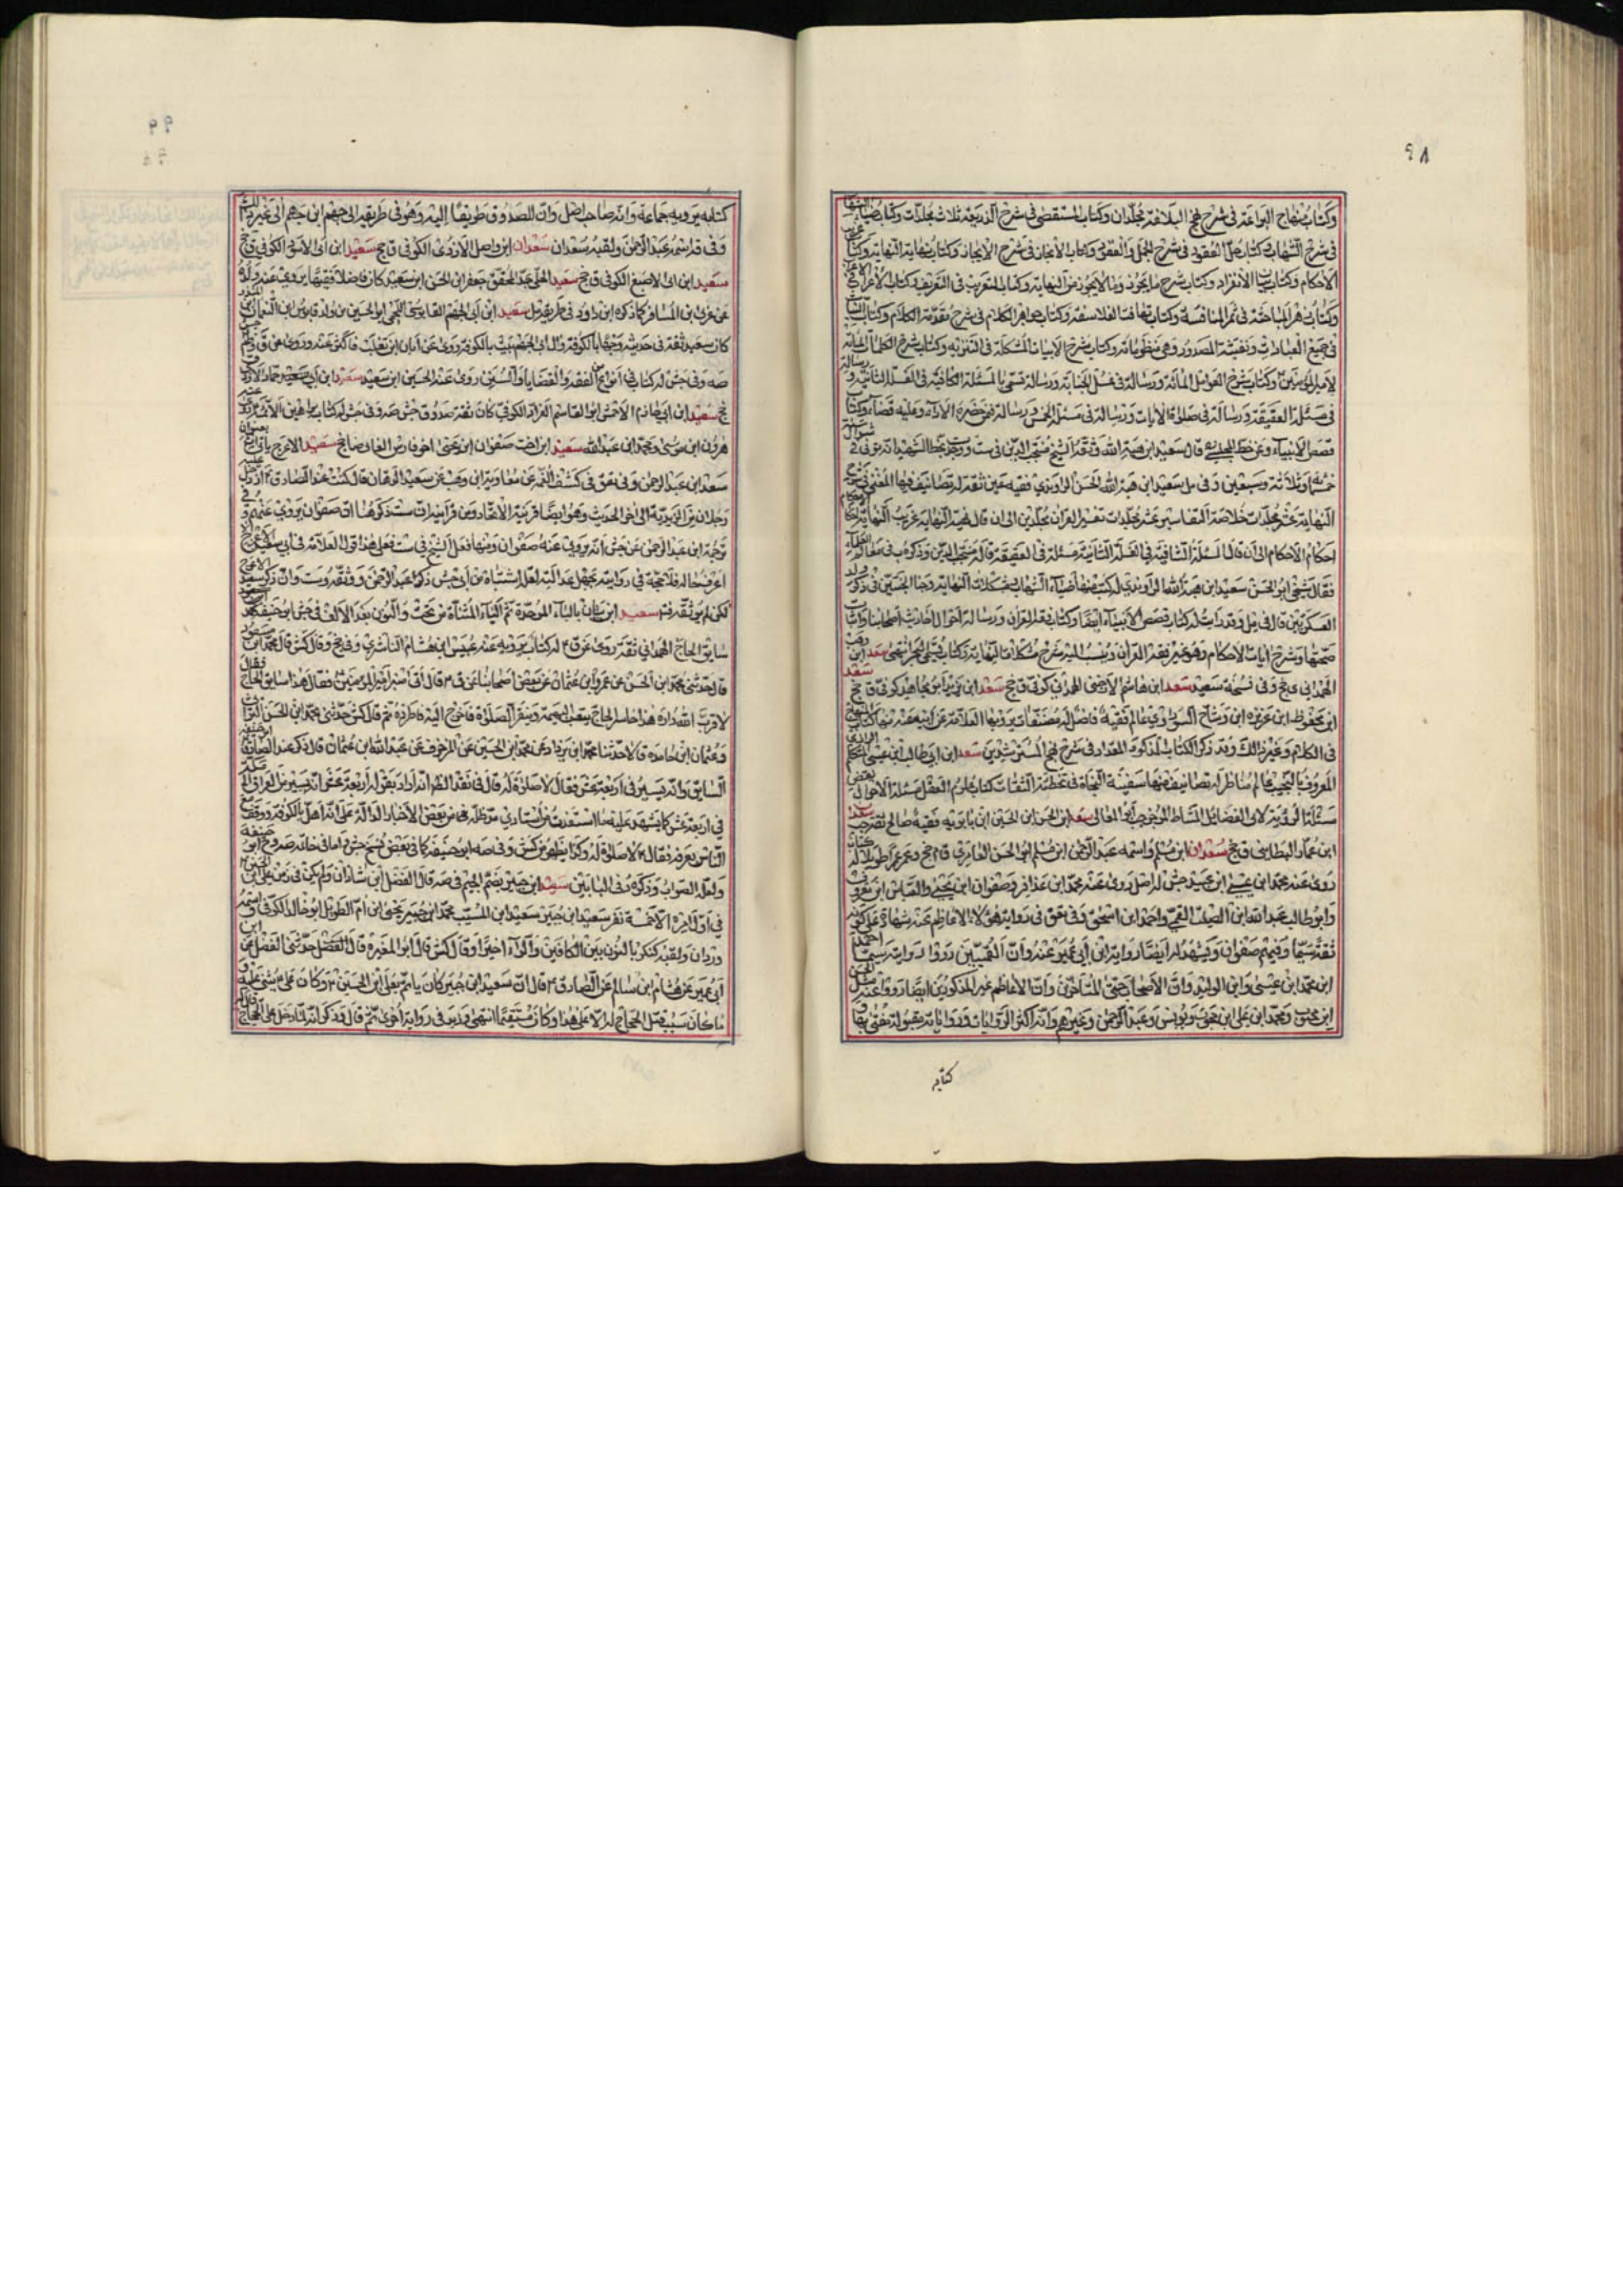 ٩٨
وكتاب منهاج البراعة في شرح نهج البلاغة مجلدان وكتاب المستقصى في شرح الذريعة ثلاث مجلدات وكتاب ضياء الشهاب
في شرح الشهاب وكتاب حل العقود في شرح الجمل والعقود وكتاب الانجاز في شرح الايجاز وكتاب نهاية النهاية وكتاب
الاحكام وكتاب بيان الانفرادات وكتاب شرح ما يجوز وما لا يجوز من النهاية وكتاب التغريب في التعريب وكتاب الاغراب في الاعراب
وكتاب زهر المباحثة وثمر المناقشة وكتاب تهافت الفلاسفة وكتاب جواهر الكلام في شرح مقدمة الكلام وكتاب
في جميع العبادات ونفثة المصدور وهي منظوماته وكتاب شرح الابيات المشكلة في التنزيه وكتاب شرح الكلمات المائة
لامير المؤمنين وكتاب شرح العوامل المائة ورسالة في غسل الجنابة ورسالة تسمى بالمسئلة الكافية في الغسلة الثانية و رسالة
في مسئلة العقيقة ورسالة في صلوة الايات ورسالة في مسئلة الخمس ورسالة من حضره الاداء وعليه قضاء وكتاب
قصص الانبياء وعن خط المجلسي قال سعيد ابن هبة الله وثقه الشيخ منتجب الدين في ست ووجد بخط الشهيد انه توفي شوال
خمسة وثلاثة وسبعين وفي مل سعيد ابن هبة الله الحسن الراوندي فقيه عين ثقة له تصانيف منها المغني في شرح
النهاية عشر مجلدات خلاصة التفاسير عشر مجلدات تفسير القران مجلدين الى ان قال نهية النهاية غريب النهاية احكام
احكام الاحكام الى ان قال المسئلة الشافية في الغسلة الثانية مسئلة في العقيقة قاله منتجب الدين وذكره ب في معالم العلماء
فقال شيخي ابو الحسن سعيد ابن هبة الله الراوندي له كتب منها ضياء الشهاب مشكلات النهاية وجنا الجنتين في ذكر ولد
العسكريين قال في مل وقد رايت له كتاب قصص الانبياء ايضا وكتاب فقه القران ورسالة احوال احاديث اصحابنا واثبات
صحتها وشرح ايات الاحكام وهو غير فقه القران وينسب اليه شرح مشكلات النهاية وكتاب يسمى البحر انتهى سعد ابن وهب
الهمداني ى جخ وفي نسخة سعيد سعد ابن هاشم الارضي الهمداني كوفي ق جخ سعد ابن يزيد ابن مجاهد كوفي ق جخ سعد
ابن محفوظ ابن عزيزة ابن وشاح السوراوي عالم فقيه فاضل له مصنفات يرويها العلامة عن ابيه عنه منها كتاب المنهاج
في الكلام وغير ذلك وقد ذكر الكتاب المذكور المقداد في شرح نهج المسترشدين سعد ابن ابي طالب ابن عيسى المتكلم الرازي
المعروف بالنجيب عالم مناظر له تصانيف منها سفينة النجاة في تخطئة الثقات كتاب علوم العقل مسئلة الاحوال نقض
مسئلة الرؤية لابي الفضائل المشاط الموجز جب ابو المعالي سعد ابن الحسن ابن الحسين ابن بابويه فقيه صالح ثقة جب سعد
ابن عمار البطاسي ق جخ سعدان ابن مسلم واسمه عبد الرحمن ابن مسلم ابو الحسن العامري ق م جخ وعمر عمرا طويلا له كتاب
روى عنه محمد ابن عيسى ابن عبيد جش له اصل روى عنه محمد ابن عذافر وصفوان ابن يحيى والعباس ابن معروف
وابو طالب عبد الله ابن الصلت القمي واحمد ابن اسحق وفي تعق في رواية هؤلاء الاعاظم عنه شهادة على كونه
ثقة سيما وفيهم صفوان ويشهد له ايضا رواية ابن ابي عمير عنه وان القميين رووا رواية سيما احمد
ابن محمد ابن عيسى وابن الوليد وان الاصحاب حتى المتاخرين وان الاعاظم غير المذكورين ايضا رووا عنه مثل الحسن
ابن محبوب ومحمد ابن علي ابن محبوب ويونس وعبد الرحمن وغيرهم وانه اكثر الروايات ورواياته مقبولة مفتى بها و
كتابه
٩٩
كتابه يرويه جماعة وانه صاحب اصل وان للصدوق طريقا اليه وهو في طريقه الى جهم ابن جهم الى غير ذلك
وفي قد اسمه عبد الرحمن ولقبه سعدان سعدان ابن واصل الازدي الكوفي ق جخ سعيد ابن ابي الاسود الكوفي ق جخ
سعيد ابن ابي الاصبغ الكوفي ق جخ سعيد الحلي جد المحقق جعفر ابن الحسن ابن سعيد كان فاضلا فقيها يروي عنه ولده
عن عربي بن المسافر كما ذكره ابن داود في طريقه مل سعيد ابن ابي الجهم القابوسي اللخمي ابو الحسين من ولد قابوس ابن النعمان ابن المنذر
كان سعيد ثقة في حديثه وجها بالكوفة وال ابي الجهم بيت بالكوفة روى عن ابان ابن تغلب فاكثر عنه وروى عن ق و م
صه وفي جش له كتاب في انواع من الفقه والقضايا والسنن روى عنه الحسين ابن سعيد سعيد ابن ابي سعيد حماد الازدي
جخ سعيد ابن ابي خازم الاحمسي ابو القاسم الغراد الكوفي كان ثقة صدوق جش صه وفي جش له كتاب براهين الائمة
هرون ابن موسى ومحمد ابن عبد الله سعيد ابن اخت صفوان ابن يحيى اخو فارس الغال ضا جخ سعيد الاعرج ياتي بعنوان
سعيد ابن عبد الرحمن وفي تعق في كشف الغمة عن معاوية ابن وهب عن سعيد السمان قال كنت عند الصادق اذ دخل عليه
رجلان من الزيدية الى اخر الحديث وهو ايضا قرينة الاتحاد ومن قرائن ذلك ست ذكر هنا ان صفوان يروي عنه و
ترجمة ابن عبد الرحمن عن جش انه يروي عنه صفوان ومنها فعل الشيخ في ست فعلى هذا قول العلامة في ابي سعيد الاعرج لا
اعرف حاله فلا حجة في روايته بجهل عدالته لعل اشتباه من ابو جش ذكر عبد الرحمن ووثقه وست وان ذكر سعيد الاعرج
لكن لم يوثقه فتم سعيد ابن بيان بالباء الموحدة ثم الياء المثناة من تحت والنون بعد الالف في جش ابو حنيفة
سابق الحاج الهمداني ثقة روى عن ق له كتاب يرويه عنه عبيس ابن هشام الناشري وفي جخ وقال كش قال محمد ابن مسعود
قال حدثني محمد ابن الحسن عن عمرو ابن عثمان عن بعض اصحابنا عن ق قال اتى قنبر امير المؤمنين فقال هذا سابق الحاج فقال
لا قرب الله داره هذا خاسر الحاج يتعب البهيمة وينقر الصلوة فاخرج اليه فاطرده ثم قال كش حدثني محمد ابن الحسن البراثي
وعثمان ابن حامد قالا حدثنا محمد ابن يزداد عن محمد ابن الحسين عن المزخرف عن عبد الله ابن عثمان قال ذكر عند الصادق ابو حنيفة
السابق وانه يسير في اربعة عشر فقال لا صلوة له قال في نقد الظاهر انه اراد بقوله اربعة عشر انه يسير من العراق الى مكة
في اربعة عشر كما يشهد عليه ما استفدت من استادي مد ظله من بعض الاخبار الدالة على انه اهل بالكوفة ووقف مع
الناس بعرفة فقال لا صلوة له وكذا يظهر من كش وفي صه ابو حنيفة كما في بعض نسخ جش واما في خاتمة صه روح ابو حنيفة
ولعله الصواب وذكره في البابين سعيد ابن جبير بضم الجيم في صه قال الفضل ابن شاذان ولم يكن في زمن علي ابن الحسين
في اول امره الا خمسة نفر سعيد ابن جبير سعيد ابن المسيب محمد ابن جبير يحيى ابن ام الطويل ابو خالد الكوفي واسمه
وردان ولقبه كنكر بالنون بين الكافين والراء اخيرا وقال كش قال ابو المغيرة قال الفضل حدثني الفضل عن ابن
ابي عمير عن هشام ابن سالم عن الصادق قال ان سعيد ابن جبير كان ياتم بعلي ابن الحسين وكان علي يثني عليه
ما كان سبب قتل الحجاج له الا على هذا وكان مستقيما انتهى وليس في رواية اخرى ثم قال وذكر انه لما دخل على الحجاج